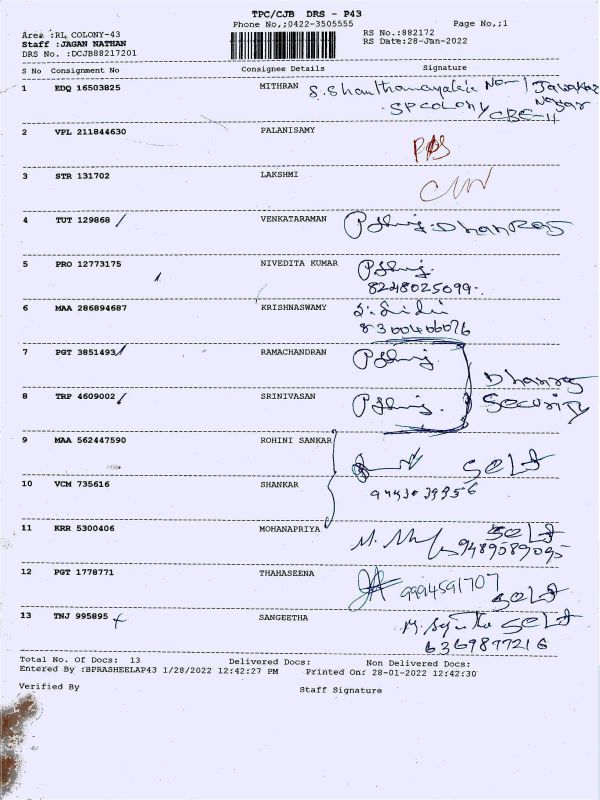 TPC/CJB DRS - P43
Phone No,;0422-3505555 Page No,;1
Area :RL COLONY-43 RS No.:882172
Staff :JAGAN NATHAN RS Date:28-Jan-2022
DRS No. :DCJB88217201
S No Consignment No Consignee Details Signature
1 EDQ 16503825 MITHRAN S. Shanthanayaki No-1 Jawakar
Nagar
SP COLONY
CBE-11
2 VPL 211844630 PALANISAMY
3 STR 131702 LAKSHMI
4 TUT 129868 VENKATARAMAN Dhanraj
5 PRO 12773175 NIVEDITA KUMAR
8248025099
6 MAA 286894687 KRISHNASWAMY
8300406076
7 PGT 3851493 RAMACHANDRAN
Dhanraj
8 TRP 4609002 SRINIVASAN Security
9 MAA 562447590 ROHINI SANKAR
Self
10 VCM 735616 SHANKAR
11 KRR 5300406 MOHANAPRIYA Self
9489089095
12 PGT 1778771 THAHASEENA 9994591707
Self
13 TNJ 995895 SANGEETHA Self
6369877216
Total No. Of Docs: 13 Delivered Docs: Non Delivered Docs:
Entered By :BPRASHEELAP43 1/28/2022 12:42:27 PM Printed On: 28-01-2022 12:42:30
Verified By Staff Signature